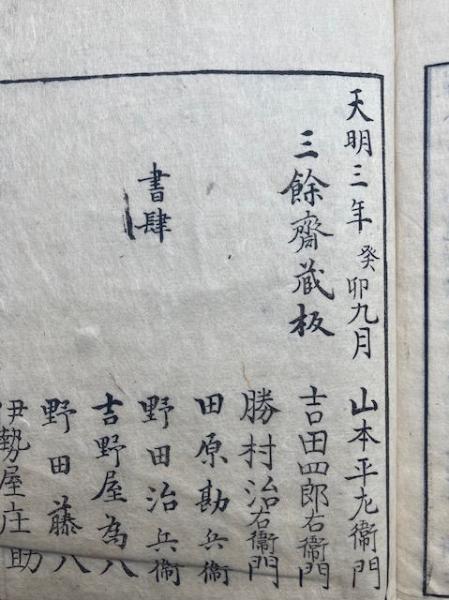 天明三年癸卯九月
三餘齋蔵板
書肆
山本平左衞門
吉田四郎右衞門
勝村治右衞門
田原勘兵衞
野田治兵衞
吉野屋為八
野田藤八
伊勢屋庄助